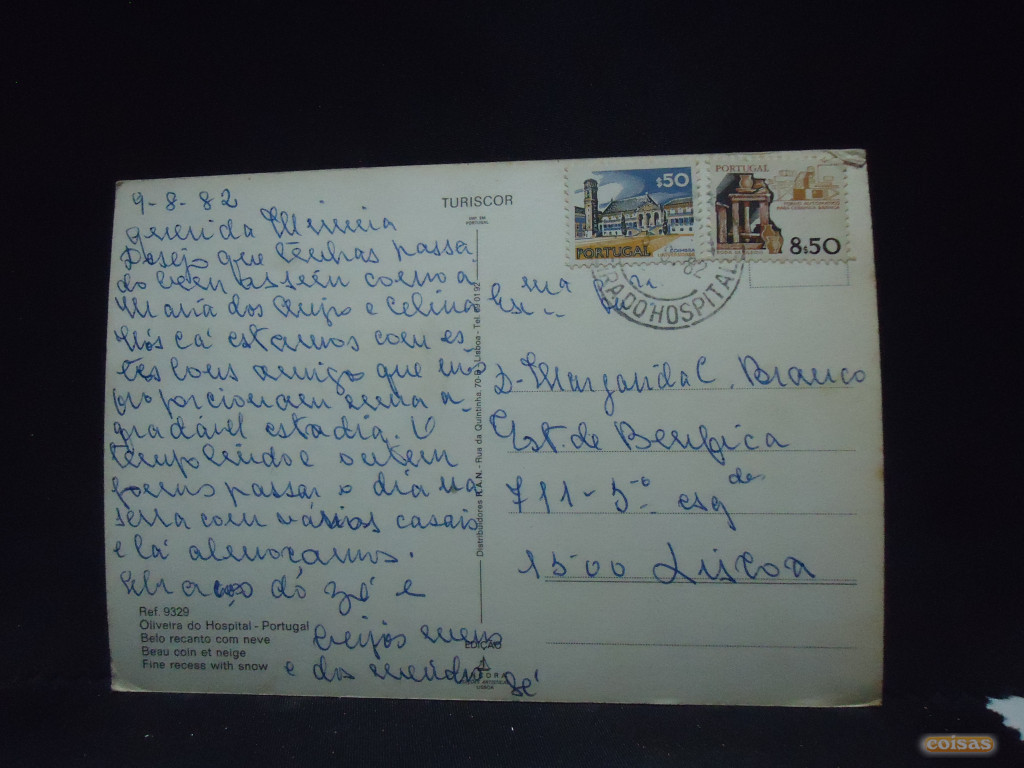 9-8-82
querida
Desejo que tenhas passa
do bem assim como a
Maria dos Anjos e Celina
Nós cá estamos com es
tes bons amigos que nos
proporcionam uma a-
gradável estadia. O
tempo lindo e ontem
fomos passar o dia na
serra com vários casais
e lá almoçamos.
Abraço do Zé e
beijos meus
e da
Zé
Ref. 9329
Oliveira do Hospital - Portugal
Belo recanto com neve
Beau coin et neige
Fine recess with snow
TURISCOR
PORTUGAL
Distribuidores R.A.N. - Rua da Quintinha, 70-B - Lisboa - Tel.
EDIÇÃO
LISBOA
$50
PORTUGAL
COIMBRA
PORTUGAL
8$50
82
DO HOSPITAL
Exma
D. Margarida C. Branco
Est. de Benfica
711-5º esqdo
1500 Lisboa
coisas